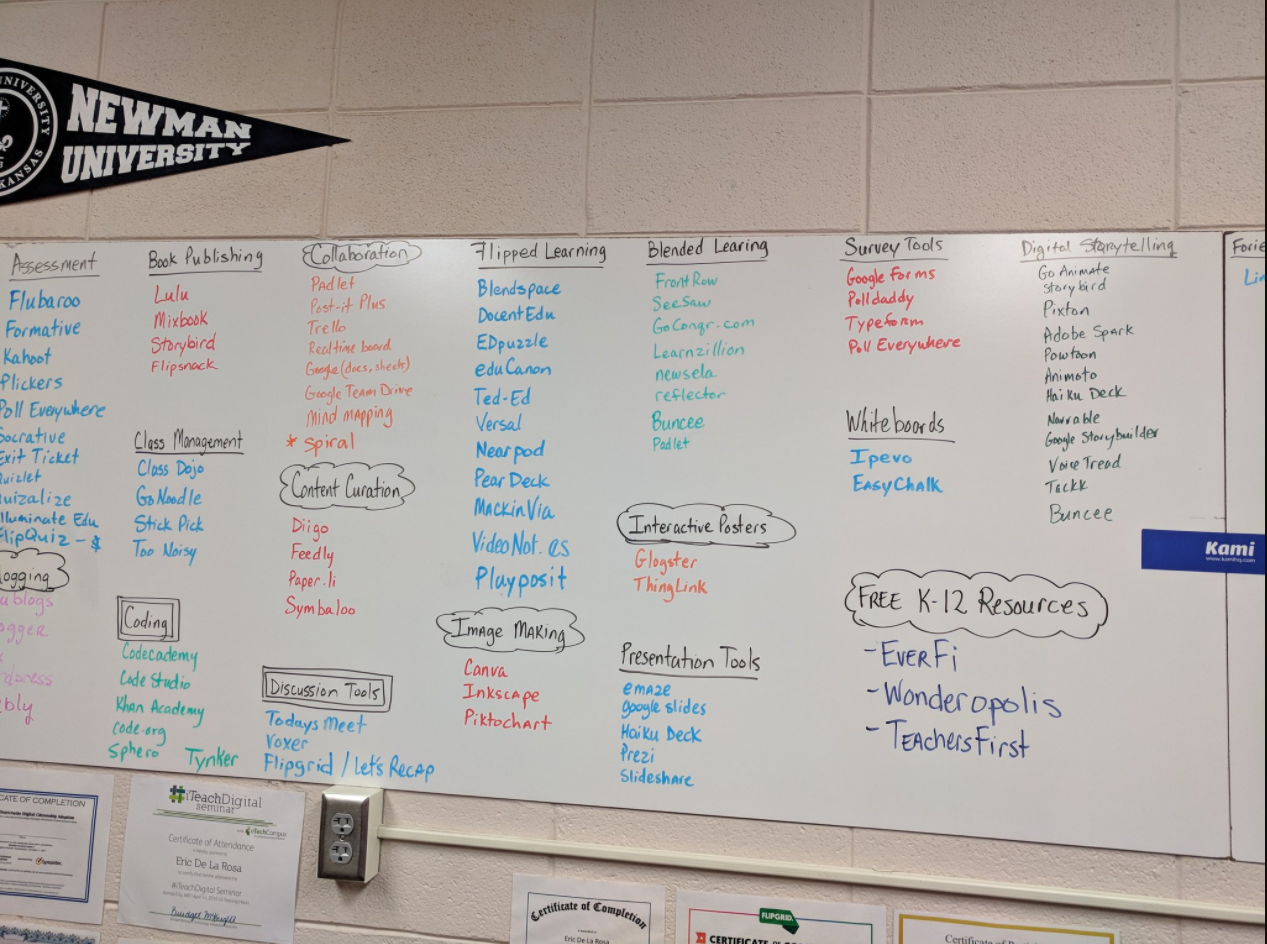 UNIVERSITY
KANSAS
NEWMAN
UNIVERSITY
Assessment
Flubaroo
Formative
Kahoot
Plickers
Poll Everywhere
Socrative
Exit Ticket
Quizlet
Quizalize
Illuminate Edu
FlipQuiz - $
logging
u blogs
ogger
dpress
ebly
Book Publishing
Lulu
Mixbook
Storybird
Flipsnack
Class Management
Class Dojo
GoNoodle
Stick Pick
Too Noisy
Coding
Codecademy
Code Studio
Khan Academy
code.org
Sphero Tynker
Collaboration
Padlet
Post-it Plus
Trello
Realtime board
Google (docs, sheets)
Google Team Drive
Mind mapping
* Spiral
Content Curation
Diigo
Feedly
Paper.li
Symbaloo
Discussion Tools
Todays Meet
Voxer
Flipgrid / Let's Recap
Flipped Learning
Blendspace
DocentEdu
EDpuzzle
eduCanon
Ted-Ed
Versal
Nearpod
Pear Deck
MackinVia
VideoNot.es
Playposit
Image Making
Canva
Inkscape
Piktochart
Blended Learing
FrontRow
SeeSaw
GoCongr.com
Learnzillion
newsela
reflector
Buncee
Padlet
Interactive Posters
Glogster
ThingLink
Presentation Tools
emaze
google slides
Haiku Deck
Prezi
Slideshare
Survey Tools
Google forms
Polldaddy
Typeform
Poll Everywhere
Whiteboards
Ipevo
EasyChalk
Free K-12 Resources
- EverFi
- Wonderopolis
- TeachersFirst
Digital Storytelling
Go Animate
Storybird
Pixton
Adobe Spark
Powtoon
Animoto
Haiku Deck
Nawrable
Google Storybuilder
VoiceTread
Tackk
Buncee
Forie
Lin
Kami
www.kamihq.com
CATE OF COMPLETION
Symantec
#iTeachDigital
seminar
eTechCampus
Certificate of Attendance
Eric De La Rosa
#iTeachDigital Seminar
Certificate of Completion
Eric De La Rosa
FLIPGRID
CERTIFICATE
Certificate of